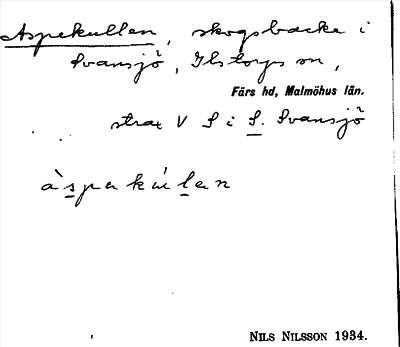 Aspekullen, skogsbacke i
Svansjö, Ilstorps sn,
Färs hd, Malmöhus län.
strax V S i S. Svansjö
àspakúlan
NILS NILSSON 1934.